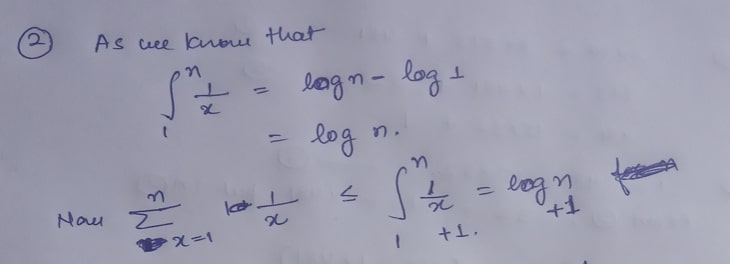 ② As we know that
∫₁ⁿ 1/x = log n - log 1
= log n.
Now ∑ₓ₌₁ⁿ 1/x ≤ ∫₁ⁿ 1/x +1. = log n +1